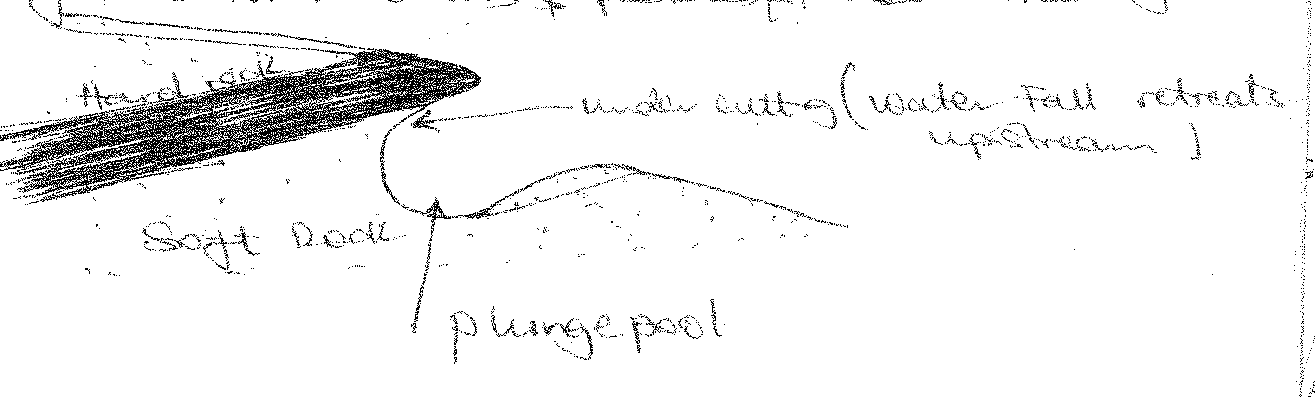 Hard rock
under cutting (water Fall retreats
upstream )
Soft Rock
plunge pool